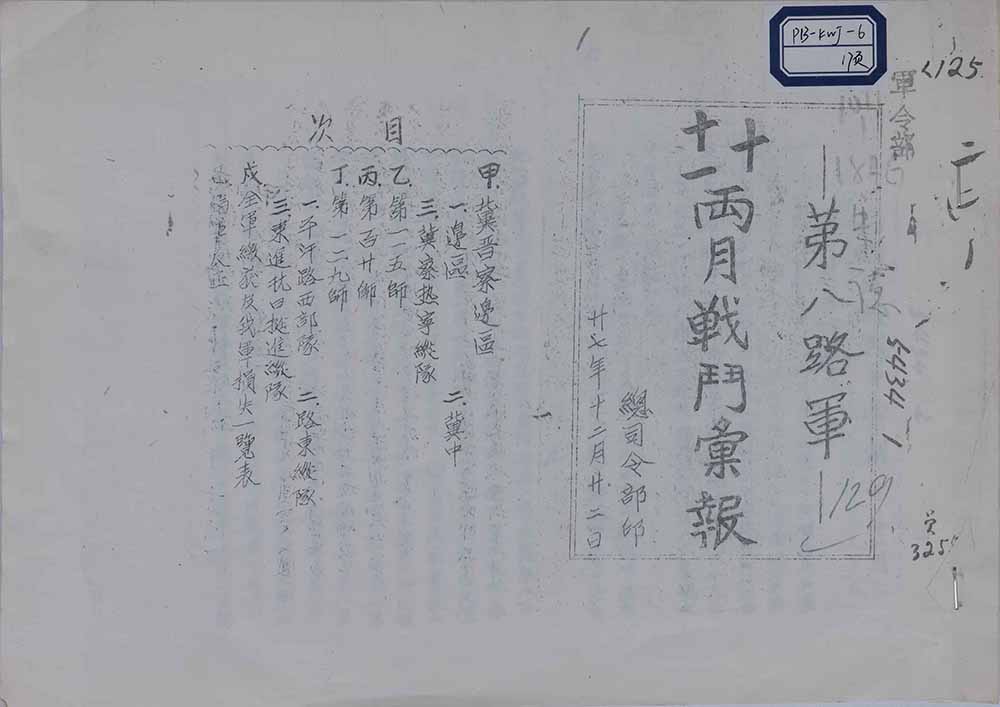 PB-KWJ-6
1页
125
軍令部
第八路軍
129
5434
325
十
十一
兩月戰鬥彙報
總司令部印
廿七年十二月廿二日
目次
甲、冀晋察邊區
一、邊區　二、冀中
三、冀察热寧縱隊
乙、第一一五師
丙、第百廿師
丁、第一二九師
一、平汗路西部隊　二、路東縱隊
三、東進抗日挺進縱隊
戊、全軍繳获及我軍損失一覽表